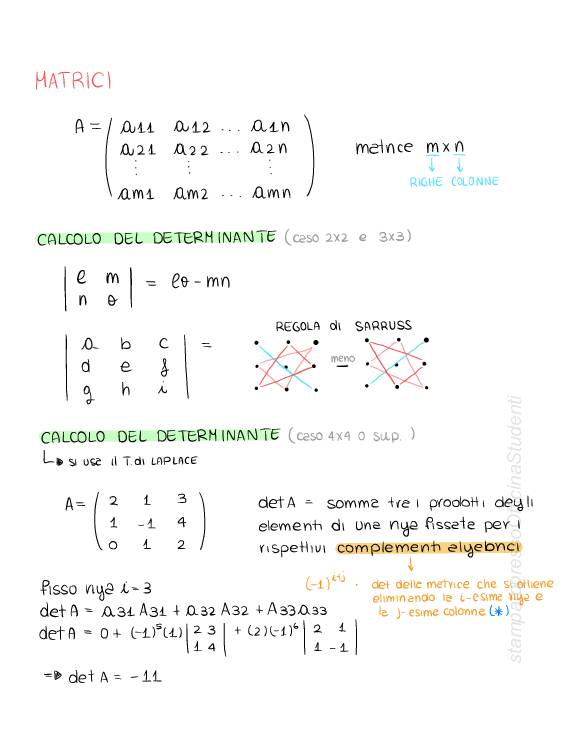 MATRICI
A = ( a11 a12 ... a1n
a21 a22 ... a2n
⋮ ⋮ ⋮
am1 am2 ... amn )
matrice m x n
↓ ↓
RIGHE COLONNE
CALCOLO DEL DETERMINANTE (caso 2x2 e 3x3)
| e m |
| n o | = eo - mn
REGOLA di SARRUSS
| a b c |
| d e f |
| g h i | =
meno
—
CALCOLO DEL DETERMINANTE (caso 4x4 o sup.)
↳ si usa il T. di LAPLACE
A = ( 2 1 3
1 -1 4
0 1 2 )
det A = somma tra i prodotti degli
elementi di una riga fissata per i
rispettivi complementi algebrici
↓
(-1)^{i+j} · det della matrice che si ottiene
eliminando la i-esima riga e
la j-esima colonna (*)
fisso riga i = 3
det A = a31 A31 + a32 A32 + A33 a33
det A = 0 + (-1)^5 (1) | 2 3 | + (2)(-1)^6 | 2 1 |
| 1 4 | | 1 -1 |
⇒ det A = -11